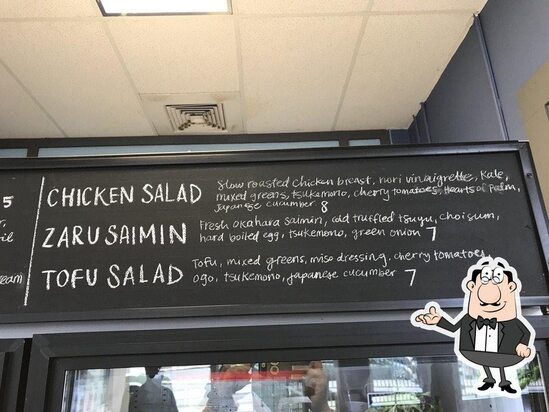 5
CHICKEN SALAD
Slow roasted chicken breast, nori vinaigrette, Kale,
mixed greens, tsukemono, cherry tomatoes, Hearts of Palm,
Japanese cucumber 8
ZARU SAIMIN
Fresh okahara saimin, cold truffled tsuyu, choi sum,
hard boiled egg, tsukemono, green onion 7
TOFU SALAD
Tofu, mixed greens, miso dressing, cherry tomatoes
ogo, tsukemono, japanese cucumber 7